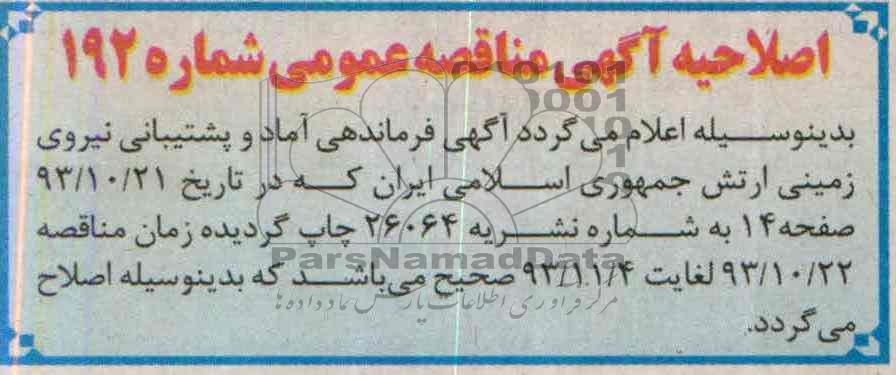 اصلاحیه آگهی مناقصه عمومی شماره ۱۹۲
بدینوسیله اعلام می گردد آگهی فرماندهی آماد و پشتیبانی نیروی
زمینی ارتش جمهوری اسلامی ایران که در تاریخ ۹۳/۱۰/۲۱
صفحه ۱۴ به شماره نشریه ۲۶۰۶۴ چاپ گردیده زمان مناقصه
۹۳/۱۰/۲۲ لغایت ۹۳/۱۱/۴ صحیح می باشد که بدینوسیله اصلاح
می گردد.
ParsNamadData
مرکز فرآوری اطلاعات پارس نماد داده ها